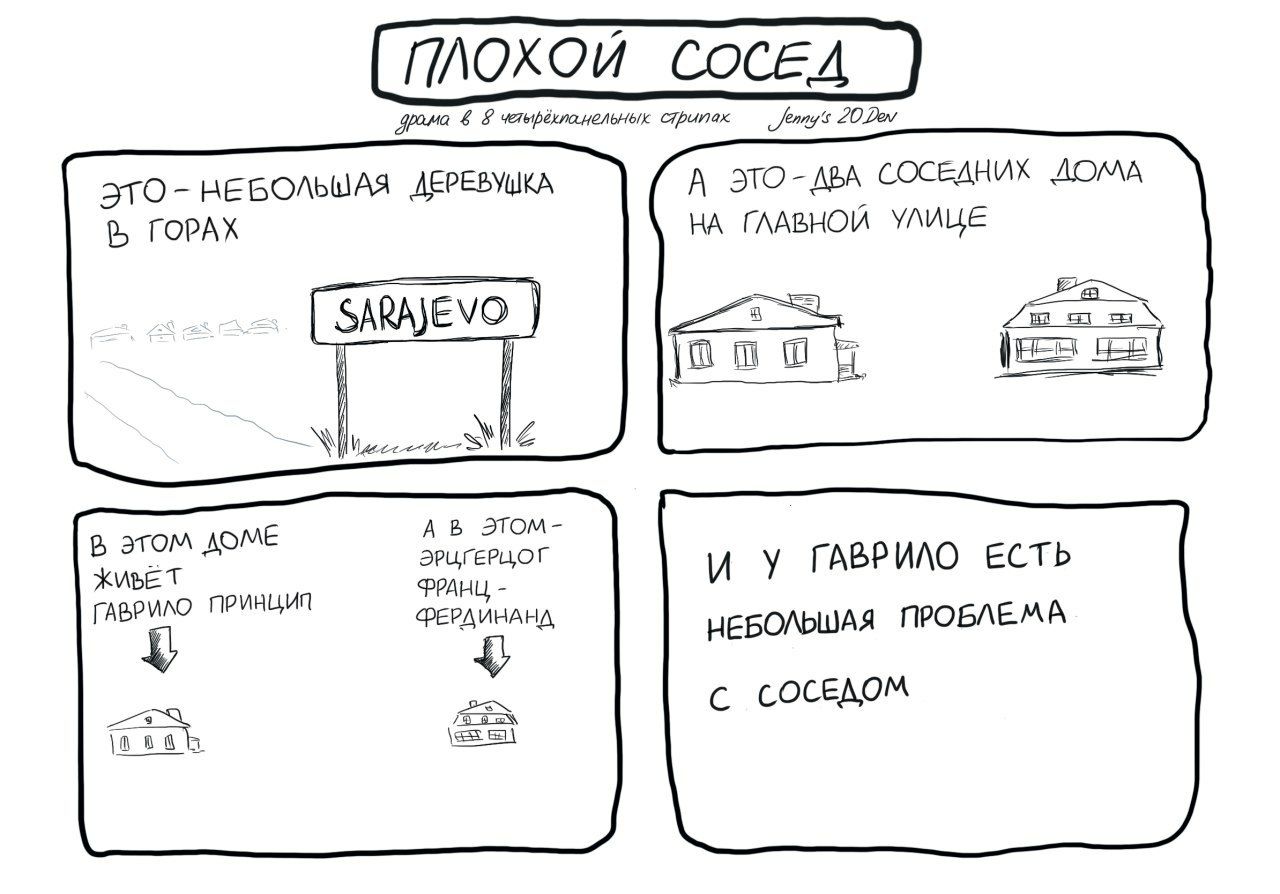 ПЛОХОЙ СОСЕД
драма в 8 четырёхпанельных стрипах Jenny's 20 Dev
ЭТО – НЕБОЛЬШАЯ ДЕРЕВУШКА
В ГОРАХ
SARAJEVO
А ЭТО – ДВА СОСЕДНИХ ДОМА
НА ГЛАВНОЙ УЛИЦЕ
В ЭТОМ ДОМЕ
ЖИВЁТ
ГАВРИЛО ПРИНЦИП
А В ЭТОМ –
ЭРЦГЕРЦОГ
ФРАНЦ –
ФЕРДИНАНД
И У ГАВРИЛО ЕСТЬ
НЕБОЛЬШАЯ ПРОБЛЕМА
С СОСЕДОМ